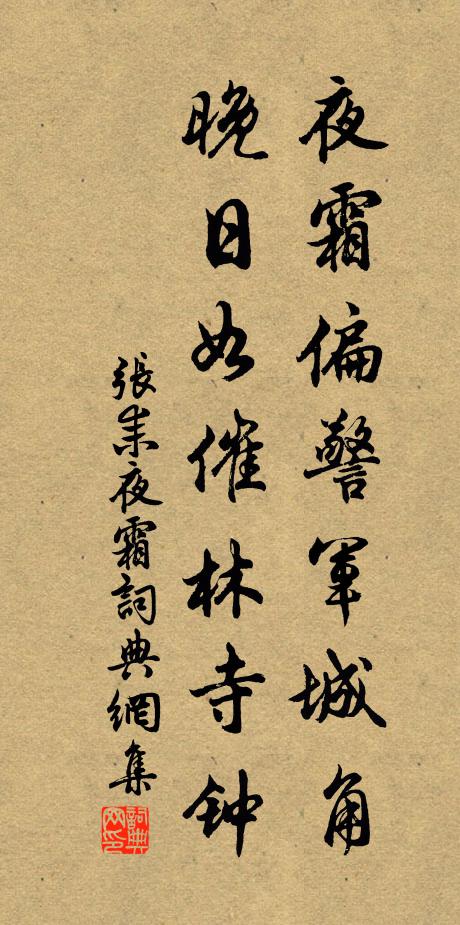 夜霜偏警军城角
晚日如催林寺钟
張耒夜霜詞典網集
詞典网印